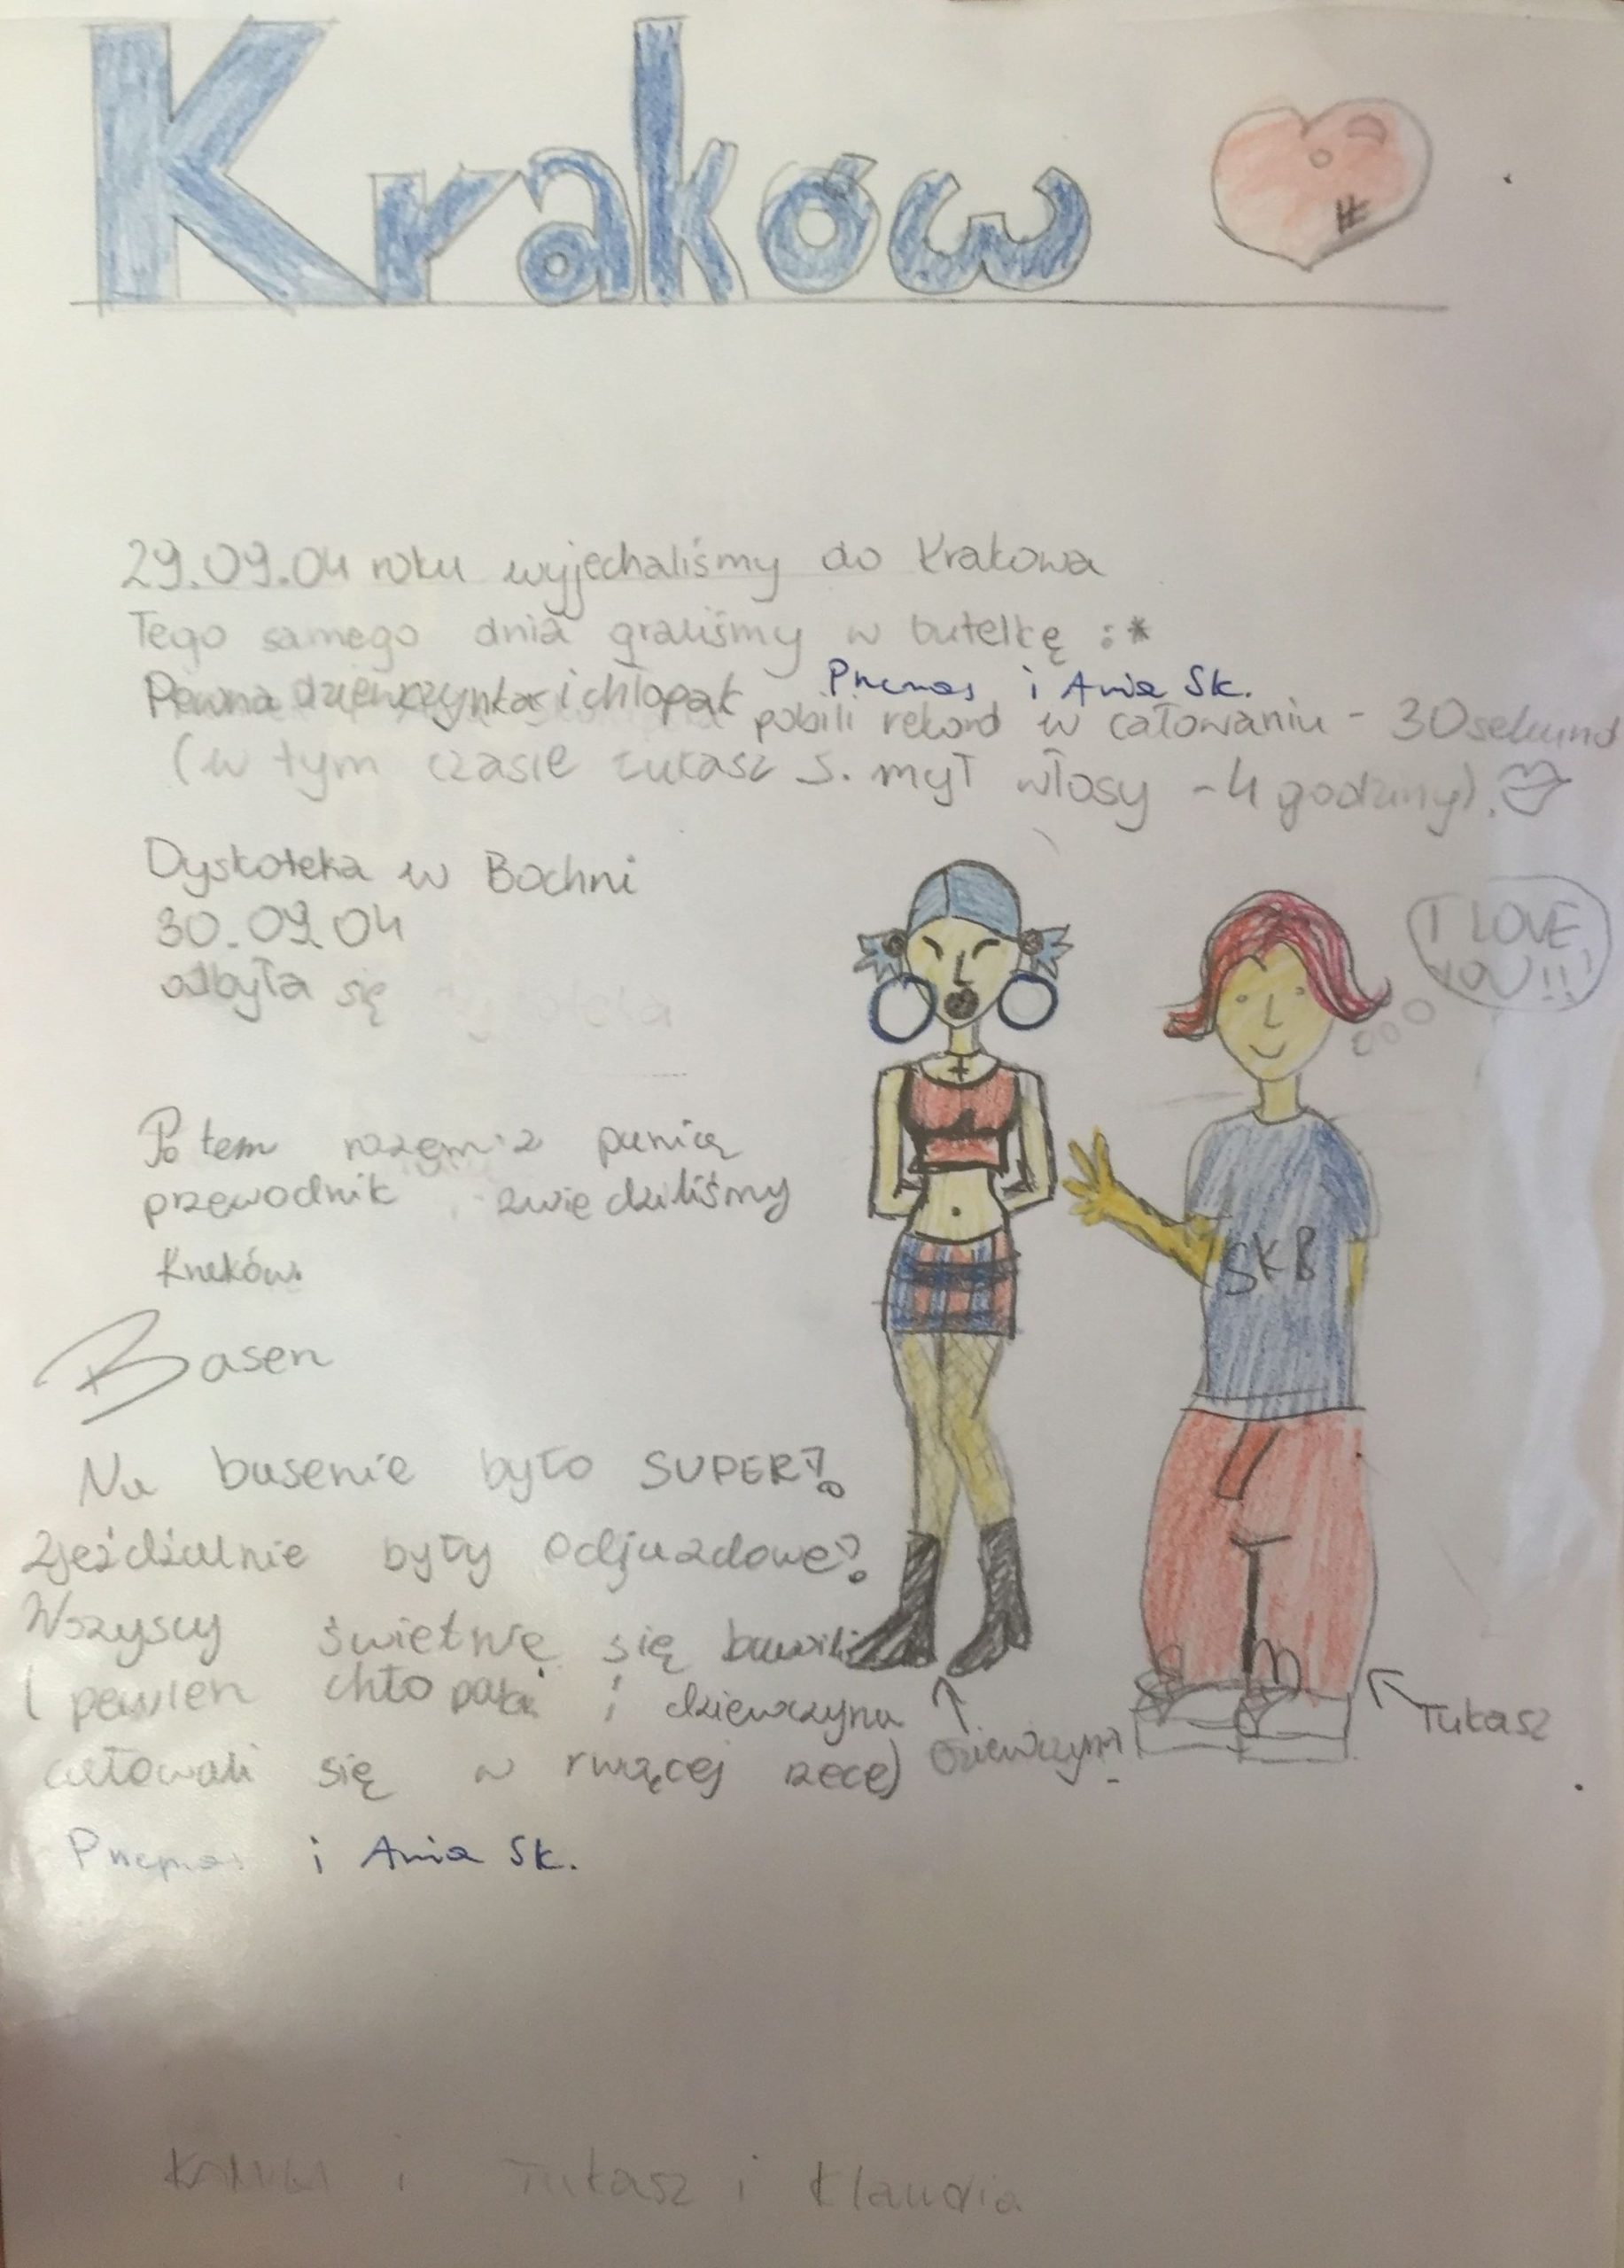 Kraków
29.09.04 roku wyjechaliśmy do Krakowa
Tego samego dnia graliśmy w butelkę :*
Pewna dziewczynka i chłopak pobili rekord w całowaniu - 30 sekund
i Ania Sk.
(w tym czasie Łukasz S. mył włosy - 4 godziny).
Dyskoteka w Bochni
30.09.04
odbyła się
I LOVE
YOU!!!
Po tem razem z panią
przewodnik zwiedziliśmy
Kraków.
SKB
Basen
Na basenie było SUPER!
Zjeżdżalnie były odjazdowe!
Wszyscy świetnie się bawili
( pewien chłopak i dziewczyna
całowali się w rwącej rzece)
dziewczyna
Łukasz
i Ania Sk.
i Łukasz i Klaudia